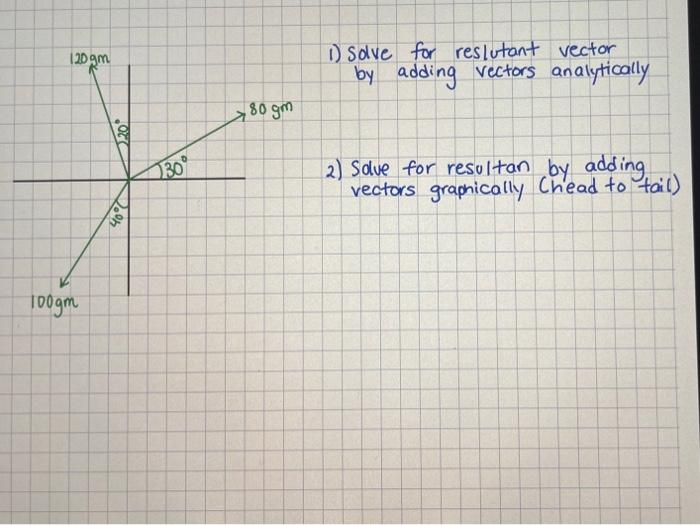 120gm
1) Solve for reslutant vector
by adding vectors analytically
80 gm
20°
30°
2) Solve for resultan by adding
vectors graphically (head to tail)
40°
100gm